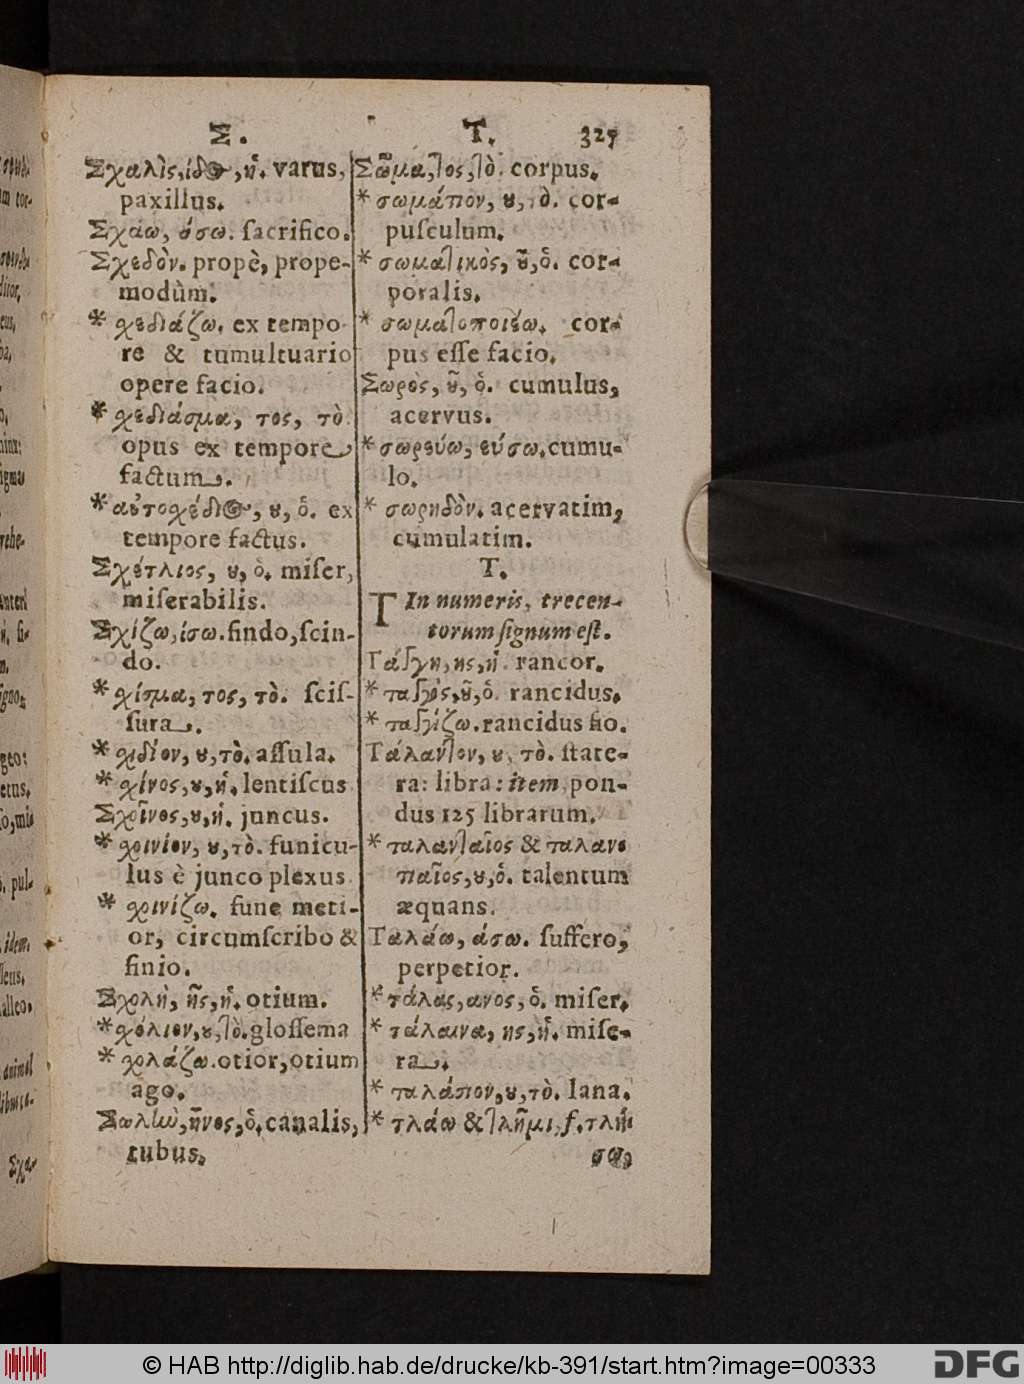 Σ.
Τ. 327
Σχαλὶς, ίδος, ἡ. varus,
paxillus.
Σχάω, άσω. ſacrifico.
Σχεδὸν. propè, prope-
modùm.
* σχεδιάζω. ex tempo
re & tumultuario
opere facio.
* σχεδίασμα, τος, τὸ
opus ex tempore
factum.
* αὐτοσχέδιος, ου, ὁ. ex
tempore factus.
Σχέτλιος, ου, ὁ. miſer,
miſerabilis.
Σχίζω, ίσω. findo, ſcin-
do.
* σχίσμα, τος, τὸ. ſciſ-
ſura.
* σχιδίον, ου, τὸ. aſſula.
* σχίνος, ου, ἡ. lentiſcus
Σχοῖνος, ου, ἡ. juncus.
* σχοινίον, ου, τὸ. funicu-
lus è junco plexus
* σχοινίζω. fune meti-
or, circumſcribo &
finio.
Σχολὴ, ῆς, ἡ. otium.
* σχόλιον, ου, τὸ. gloſſema
* σχολάζω. otior, otium
ago.
Σωλὴν, ῆνος, ὁ. canalis,
tubus.
Σῶμα, τος, τὸ. corpus.
* σωμάτιον, ου, τὸ. cor-
puſculum.
* σωματικὸς, οῦ, ὁ. cor-
poralis.
* σωματοποιέω. cor-
pus eſſe facio.
Σωρὸς, οῦ, ὁ. cumulus,
acervus.
* σωρεύω, εύσω. cumu-
lo.
* σωρηδὸν. acervatim,
cumulatim.
Τ.
Τ In numeris, trecen-
torum ſignum eſt.
Τάγγη, ης, ἡ. rancor.
* ταγγὸς, οῦ, ὁ. rancidus.
* ταγγίζω. rancidus fio.
Τάλαντον, ου, τὸ. ſtate-
ra: libra: item pon-
dus 125 librarum.
* ταλανταῖος & ταλαν-
τιαῖος, ου, ὁ. talentum
æquans.
Ταλάω, άσω. ſuffero,
perpetior.
* τάλας, ανος, ὁ. miſer.
* τάλαινα, ης, ἡ. miſe-
ra.
* ταλάσιον, ου, τὸ. lana.
* τλάω & τλῆμι, f. τλή-
σω,
© HAB http://diglib.hab.de/drucke/kb-391/start.htm?image=00333
DFG